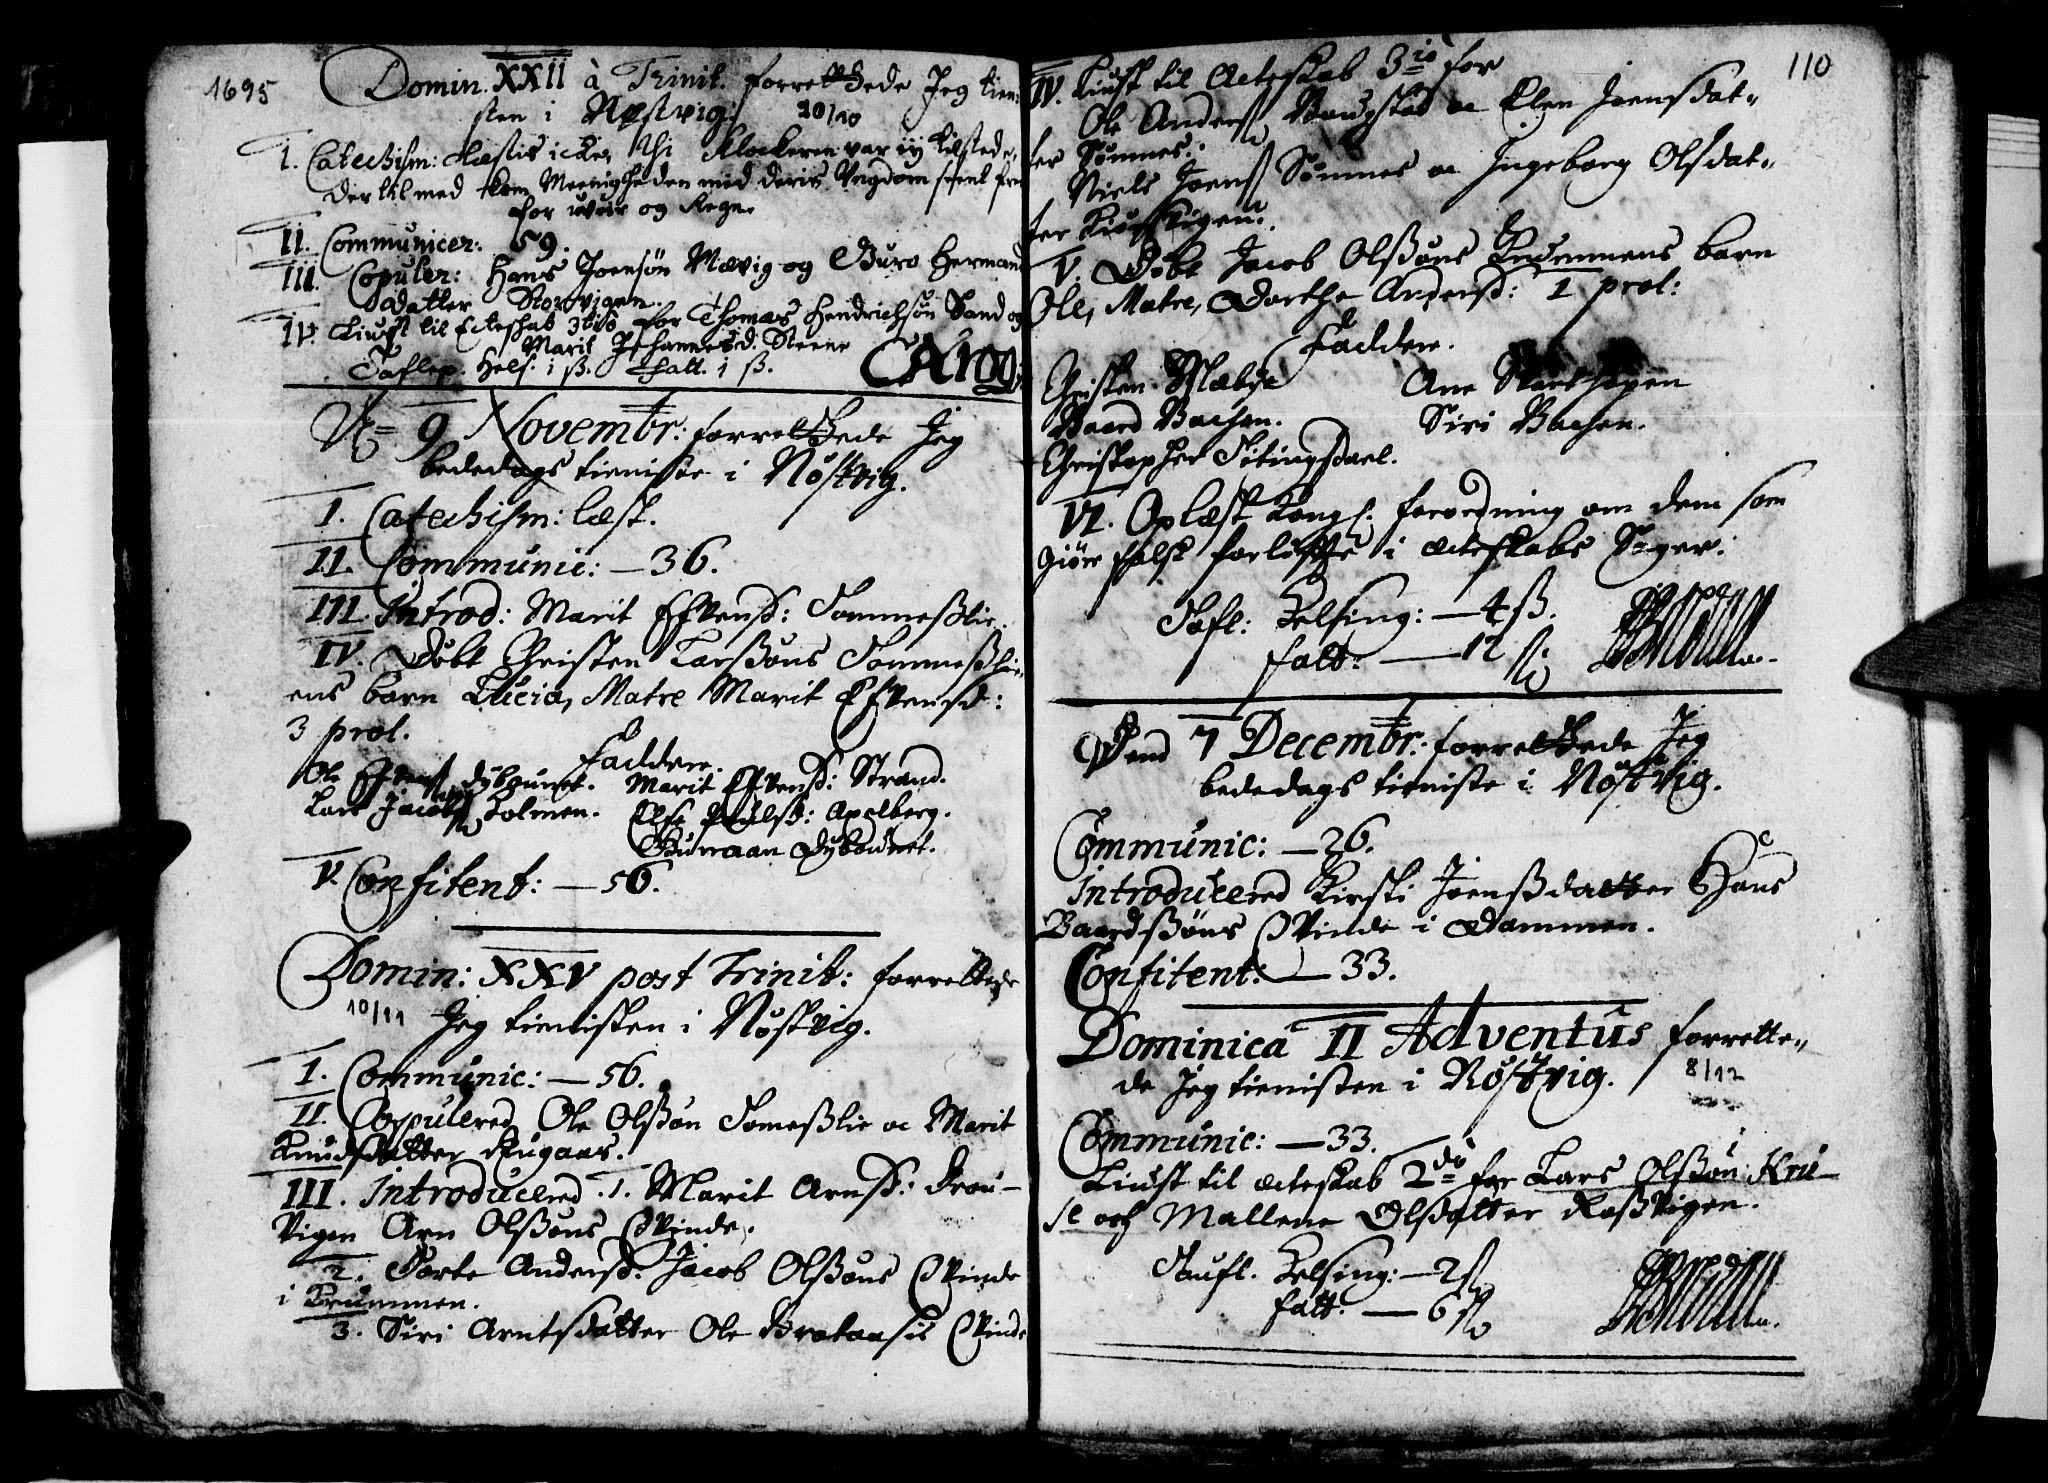 1695
Domin. XXII à Trinit. forrettede Jeg tien-
sten i Nøstvig. 20/10
I. Catechism: Læstis icke, thi Klockeren var ey tilstede,
der til med kom Meenigheden med deris Ungdom seent frem
for uveir og Regn.
II. Communicer: 59.
III. Copuler: Hans Joensøn Mævig og Guro Hermands
datter Storvigen.
IV. Liust til Ecteskab 3tio for Thomas Hendrichsøn Sand og
Marit Johannesd. Steene
Taflep. Hels. 1 ß. Fatt. 1 ß.
9 Novembr: forrettede Jeg
bededags tieniste i Nöstvig.
I. Catechism: læst.
II. Communic: — 36.
III. Introd: Marit Efvensd: Sommeßlie.
IV. Döbt Christen Larßöns Sommeßlie-
ens barn Lucia, Matre Marit Efvensd:
3 præl.
Faddere.
Ole Efvens. Dybvunet. Marit Efvensd: Strand.
Lars Jacobs. Holmen. Else Poulsd: Apelberg.
Guru Dybvunet.
V. Confitent: — 56.
Domin: XXV post Trinit: forrettede
10/11 Jeg tienisten i Nöstvig.
I. Communic: — 56.
II. Copulered Ole Olßøn Someßlie oc Marit
Knudsdatter Rugaas.
III. Introducered. 1. Marit Arnsd:
Vigen Arn Olßöns Qvinde.
2. Dorte Andersd. Jacob Olßöns Qvinde
i Brummen.
3. Siri Arntsdatter Ole Qvinde
110
IV. Liust til Ecteskab 3io for
Ole Anders. Baugstad oc Elen Joensdat-
ter Sømnes.
Niels Joens. Sömnes oc Ingeborg Olsdat-
ter
V. Döbt Jacob Olßöns barn
Ole, Matre, Dorthe Andersd: 1 præl:
Faddere.
Christen Mæbye Ane
Baard Bachen. Siri Bachen.
Christopher Sitingsdael.
VI. Oplæst Kongl. forordning om dem som
giöre falsk i Ecteskabs Sager.
Tafl: Helsing: — 4 ß.
Fatt: — 12 ß
Dend 7 Decembr: forrettede Jeg
bededags tieniste i Nöstvig.
Communic: — 26.
Introducered Kirsti Joenßdatter Hans
Baardßöns Qvinde i Dammen.
Confitent: — 33.
Dominica II Adventus forrette-
de Jeg tienisten i Nöstvig. 8/12
Communic: — 33.
Liust til ecteskab 2do for Lars Olßön Kru-
se och Mallene Olsdatter Roßvigen.
Taufl. Helsing: — 2 ß
Fatt: — 6 ß